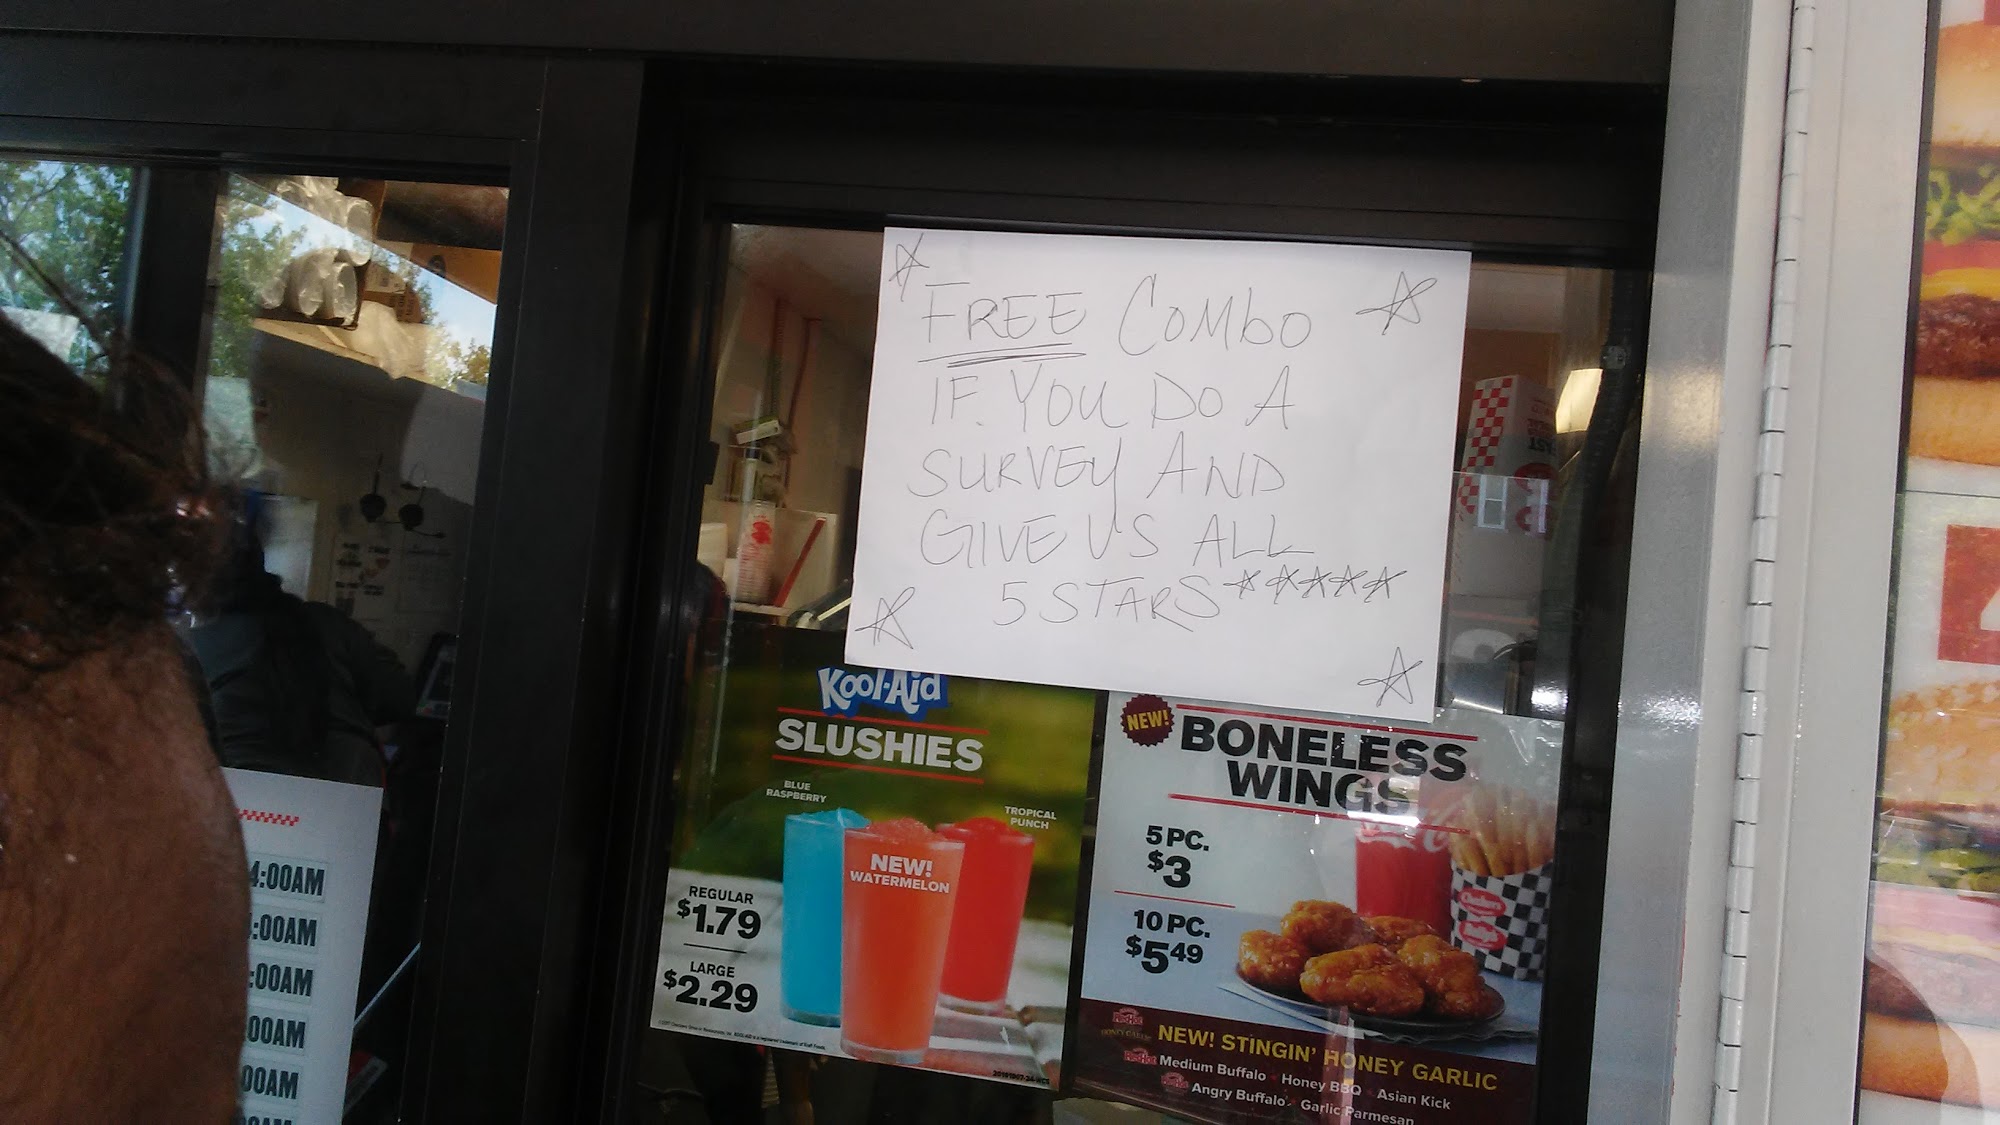 FREE COMbO
IF. YOU DO A
SURVEY AND
GIVE US ALL
5 STARS
Kool-Aid
SLUSHIES
BLUE
RASPBERRY
TROPICAL
PUNCH
NEW!
WATERMELON
REGULAR
$1.79
LARGE
$2.29
NEW!
BONELESS
WINGS
5 PC.
$3
10 PC.
$5.49
NEW! STINGIN' HONEY GARLIC
Medium Buffalo Honey BBQ Asian Kick
Angry Buffalo Garlic Parmesan
4:00AM
:00AM
:00AM
:00AM
00AM